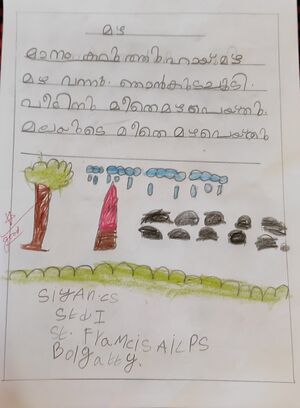 മഴ
മാനം കറുത്തു മഴ
മഴ വന്നു. ഞാൻ കുട ചൂടി.
വീടിനു മീതെ മഴ പെയ്തു.
മലയുടെ മീതെ മഴ പെയ്തു
Siyan.cs
Std I
St. Francis A.LPS
Bolgatty.